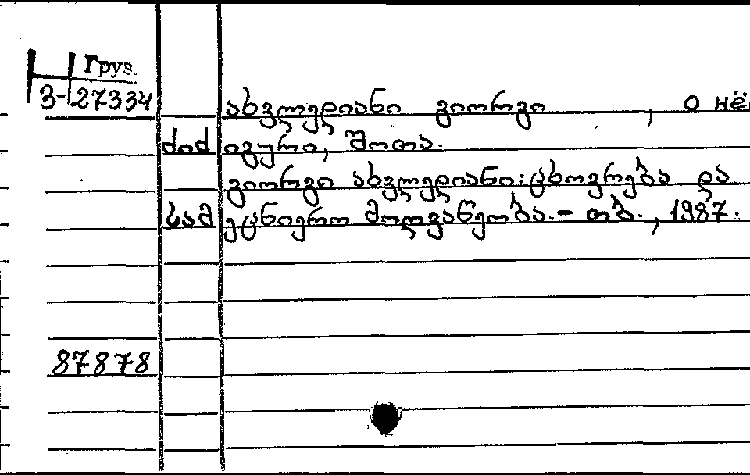 Груз.
3-27334
ახვლედიანი გიორგი , о нё
ძიძიგური, შოთა.
გიორგი ახვლედიანი: ცხოვრება და
სამეცნიერო მოღვაწეობა.- თბ., 1987.
87878